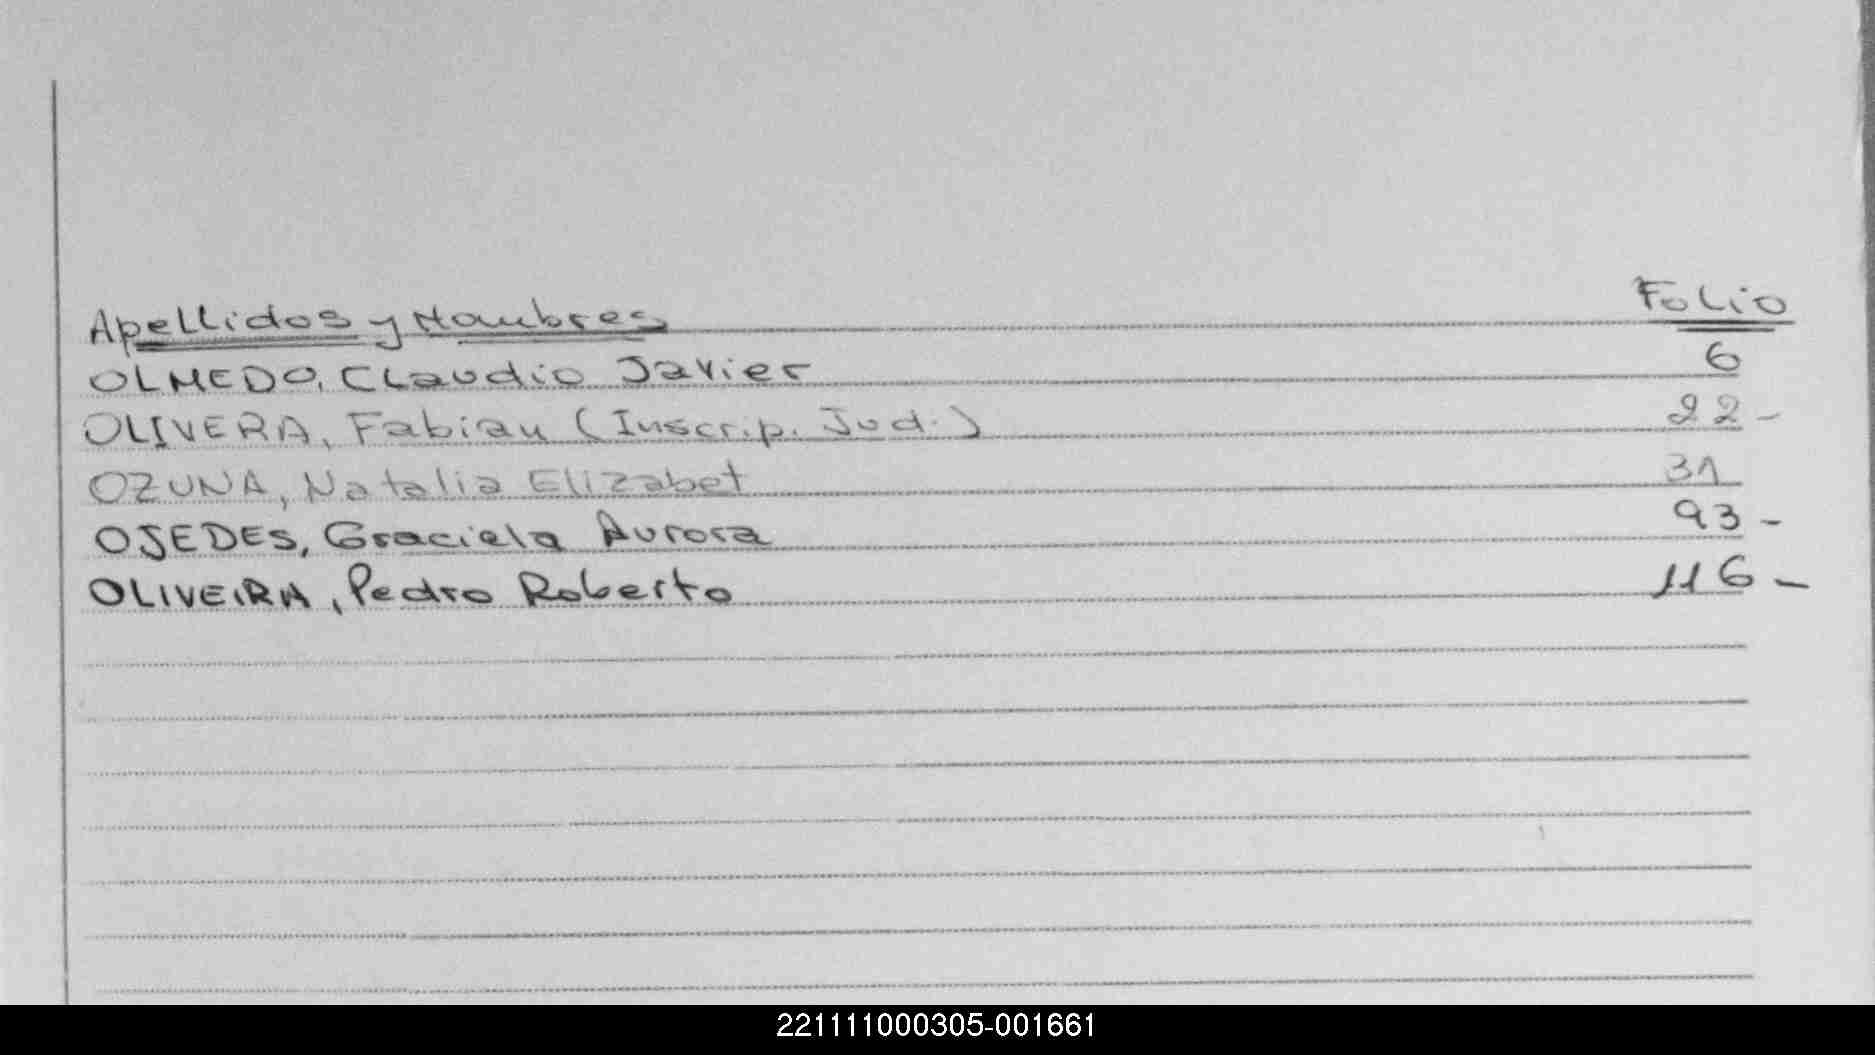 Apellidos y Nombres Folio
OLMEDO, Claudio Javier 6
OLIVERA, Fabian (Inscrip. Jud.) 22-
OZUNA, Natalia Elizabet 31
OJEDES, Graciela Aurora 93-
OLIVEIRA, Pedro Roberto 116-
221111000305-001661